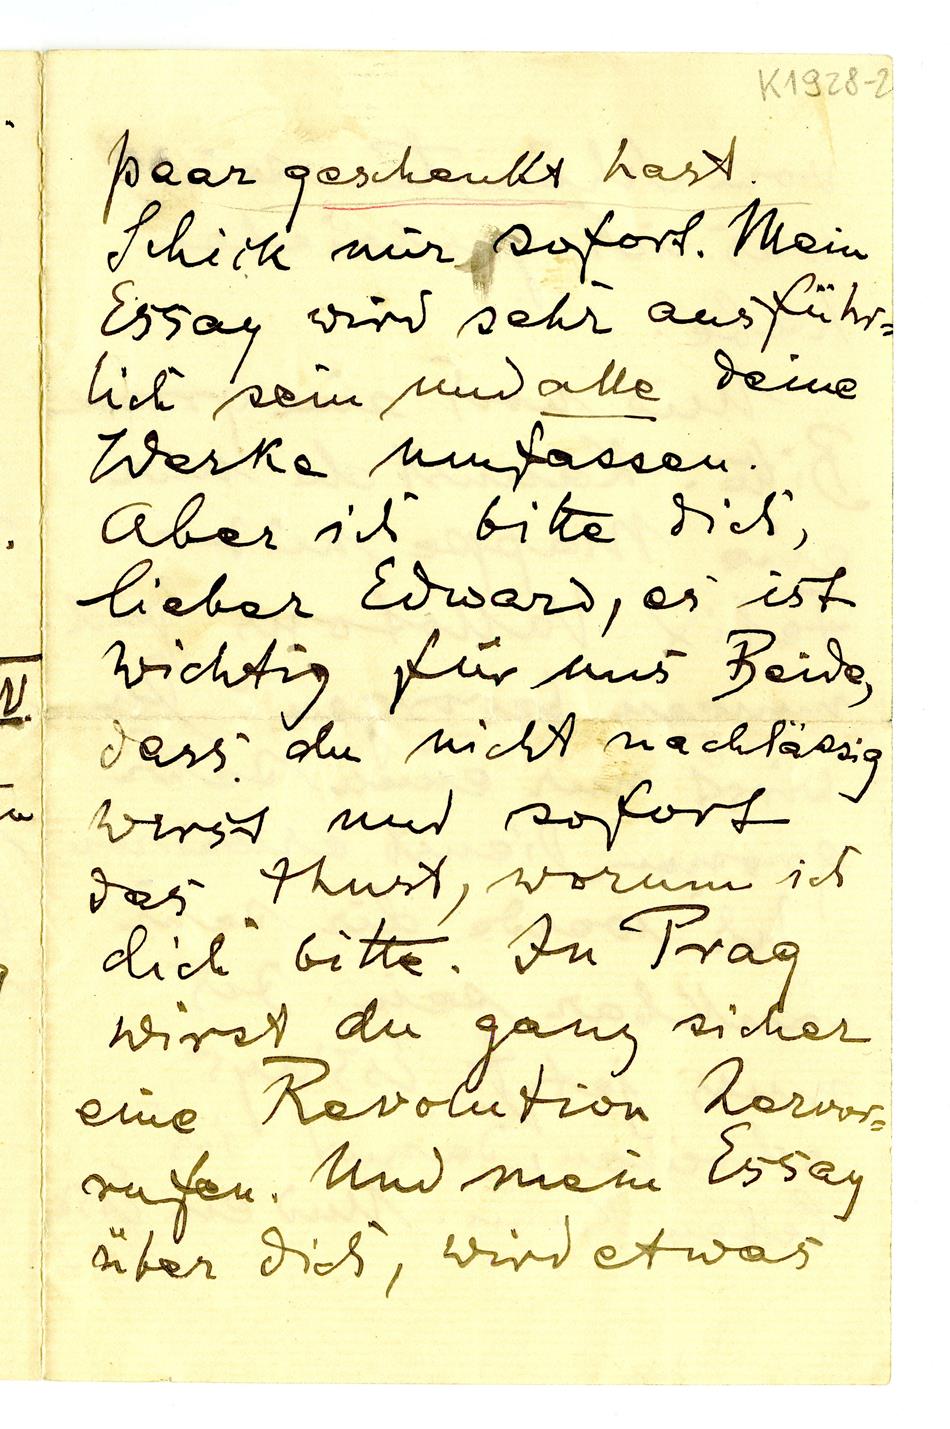 K1928-2
paar geschenkt hast.
Schick nur sofort. Mein
Essay wird sehr ausführ=
lich sein und alle deine
Werke umfassen.
Aber ich bitte dich,
lieber Edward, es ist
wichtig für uns Beide,
dass du nicht nachlässig
wirst und sofort
das thust, worum ich
dich bitte. In Prag
wirst du ganz sicher
eine Revolution hervor=
rufen. Und mein Essay
über dich, wird etwas